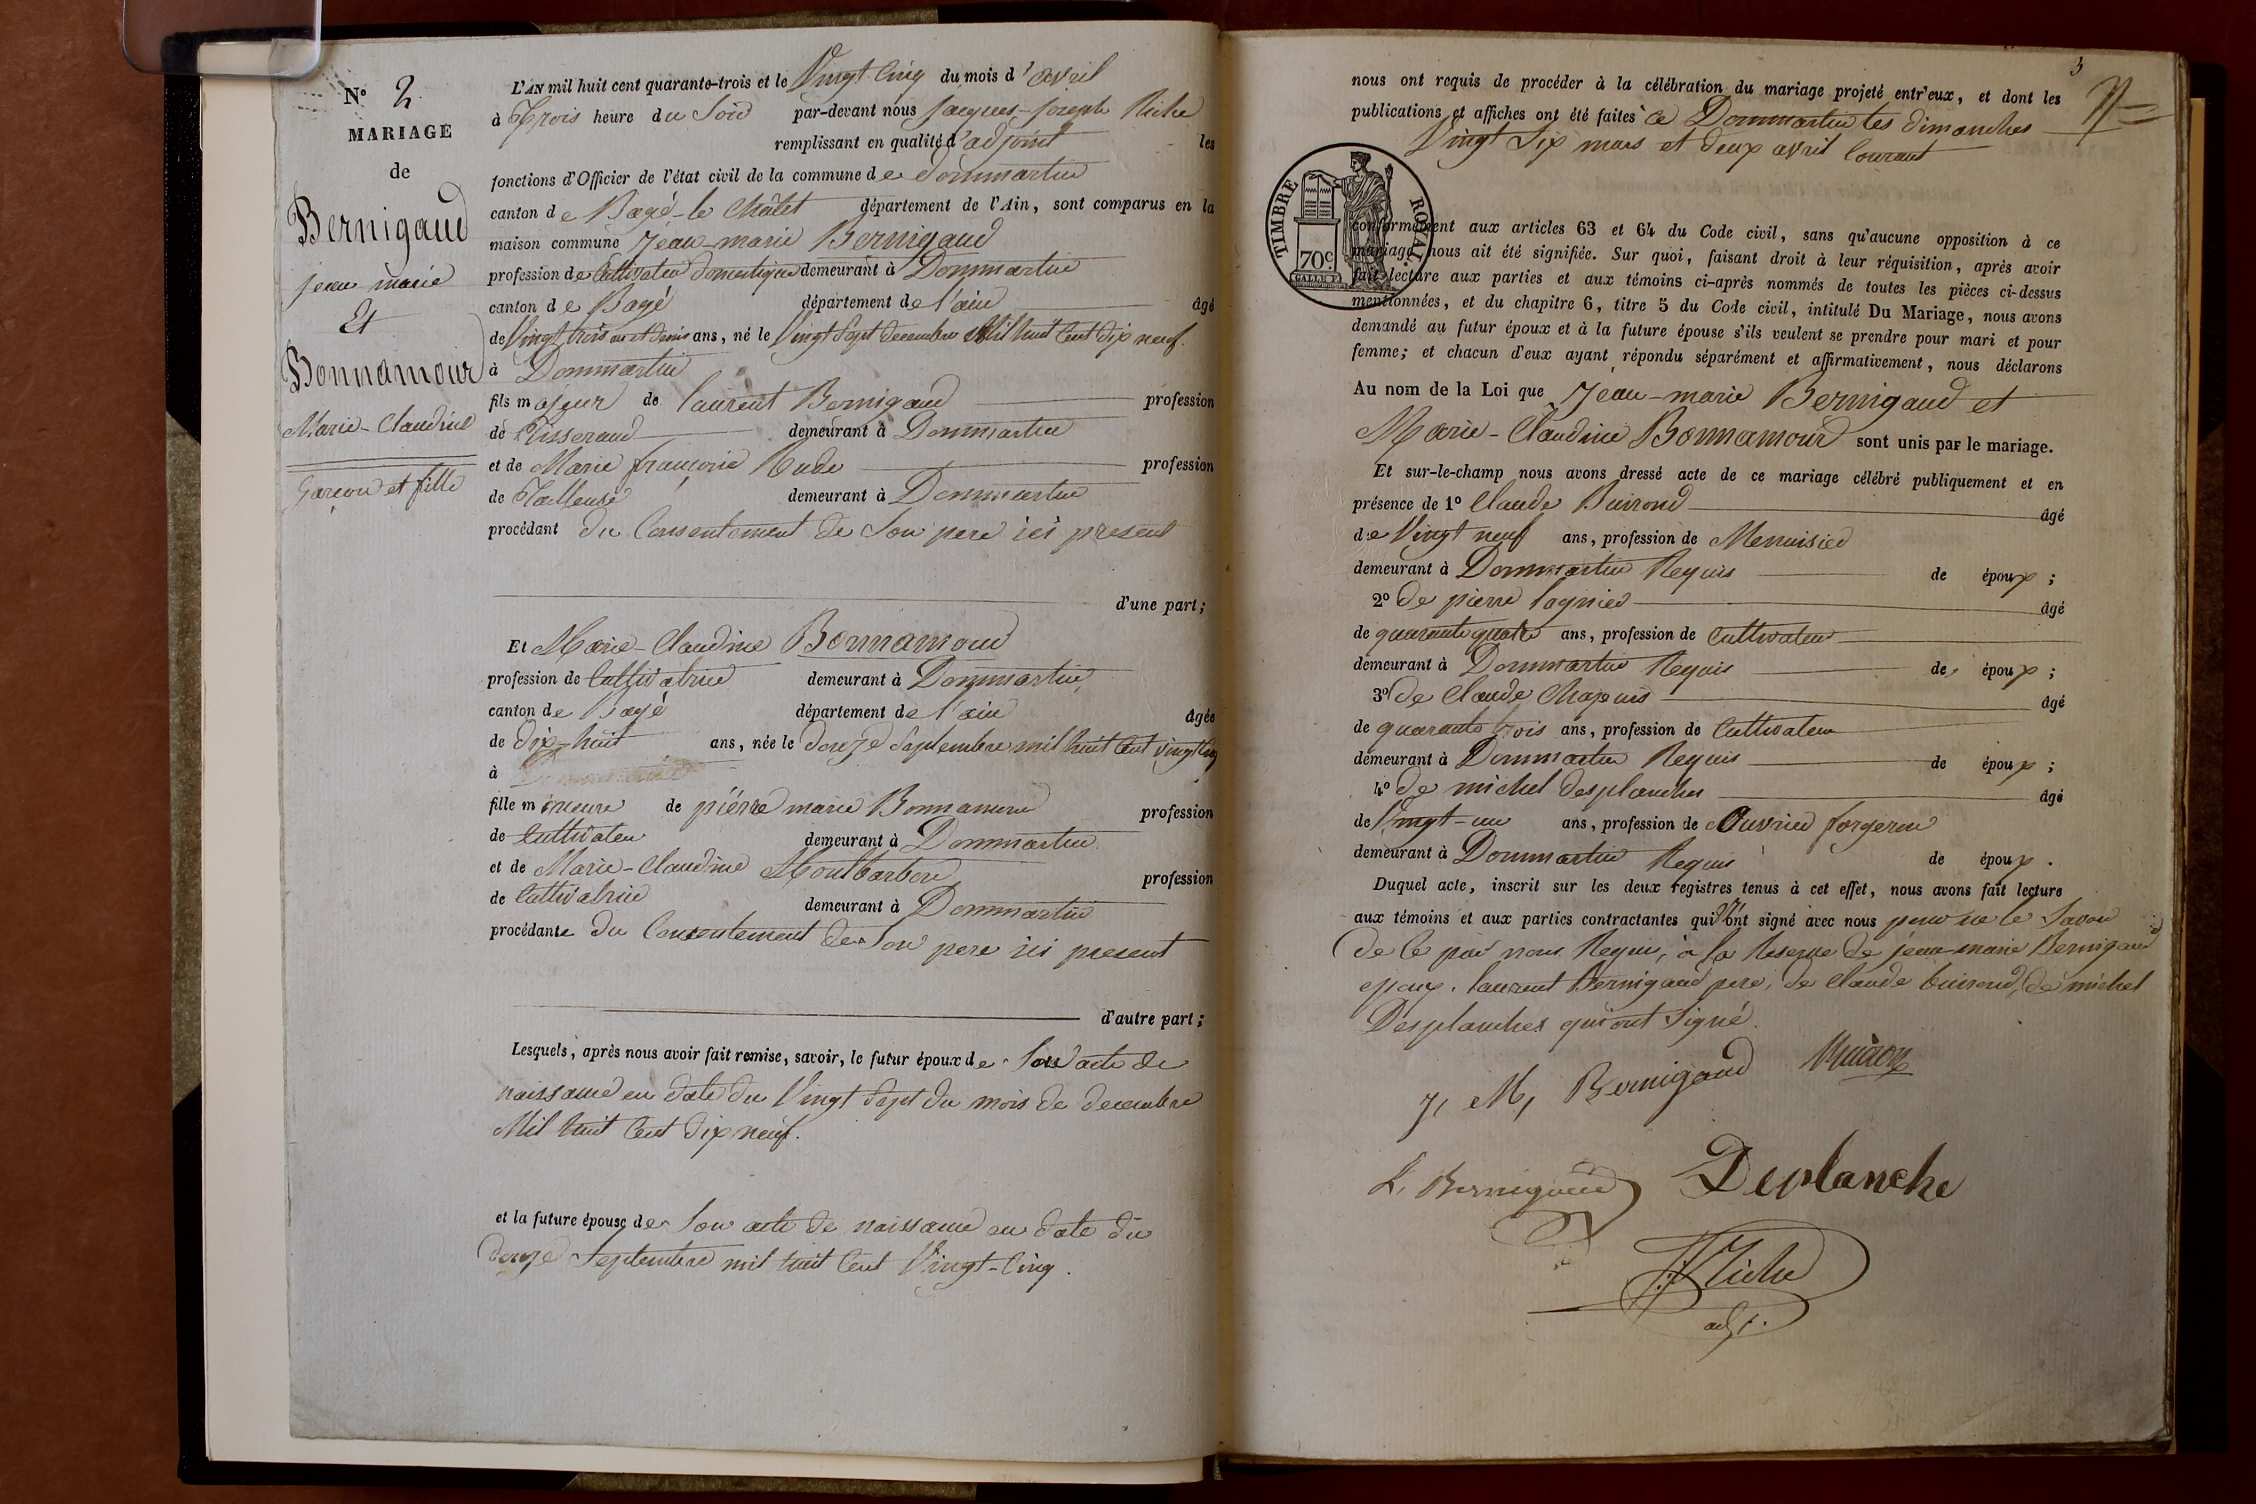 N° 2
MARIAGE
de
Bernigaud
jean marie
Et
Bonnamour
Marie-Claudine
Garçon et fille
L'AN mil huit cent quarante-trois et le Vingt Cinq du mois d'avril
à Trois heure du Soir par-devant nous Jacques-joseph Riche
remplissant en qualité d'adjoint les
fonctions d'Officier de l'état civil de la commune de Dommartin
canton de Bagé-le Châtel département de l'Ain, sont comparus en la
maison commune Jean-marie Bernigaud
profession de Cultivateur domestique demeurant à Dommartin
canton de Bagé département de l'ain âgé
de Vingt trois ans et demis ans, né le Vingt Sept decembre Mil huit Cent dix neuf.
à Dommartin
fils majeur de laurent Bernigaud profession
de Tisserand demeurant à Dommartin
et de Marie françoise Rude profession
de Tailleuse demeurant à Dommartin
procédant du Consentement de Son pere ici present
d'une part;
Et Marie-Claudine Bonnamour
profession de Cultivatrice demeurant à Dommartin,
canton de Bagé département de l'ain âgée
de dix-huit ans, née le douze Septembre mil huit Cent vingt Cinq
à
fille mineure de piérre marie Bonnamour profession
de Cultivateur demeurant à Dommartin
et de Marie-Claudine Montbarbon profession
de Cultivatrice demeurant à Dommartin
procédante du Consentement de Son pere ici present
d'autre part;
Lesquels, après nous avoir fait remise, savoir, le futur époux de Son acte de
naissance en date du Vingt Sept du mois de decembre
Mil huit Cent dix neuf.
et la future épouse de Son acte de naissance en date du
douze Septembre mil huit Cent Vingt-Cinq.
3
nous ont requis de procéder à la célébration du mariage projeté entr'eux, et dont les
publications et affiches ont été faites à Dommartin les dimanches
Vingt Six mars et deux avril Courant
TIMBRE ROYAL
70c
conformément aux articles 63 et 64 du Code civil, sans qu'aucune opposition à ce
mariage nous ait été signifiée. Sur quoi, faisant droit à leur réquisition, après avoir
fait lecture aux parties et aux témoins ci-après nommés de toutes les pièces ci-dessus
mentionnées, et du chapitre 6, titre 5 du Code civil, intitulé Du Mariage, nous avons
demandé au futur époux et à la future épouse s'ils veulent se prendre pour mari et pour
femme; et chacun d'eux ayant répondu séparément et affirmativement, nous déclarons
Au nom de la Loi que Jean-marie Bernigaud et
Marie-Claudine Bonnamour sont unis par le mariage.
Et sur-le-champ nous avons dressé acte de ce mariage célébré publiquement et en
présence de 1° Claude Buirond âgé
de Vingt neuf ans, profession de Menuisier
demeurant à Dommartin Requis de époux;
2° de pierre lagnier âgé
de quarante quatre ans, profession de Cultivateur
demeurant à Dommartin Requis de époux;
3° de Claude Chapuis âgé
de quarante trois ans, profession de Cultivateur
demeurant à Dommartin Requis de époux;
4° de michel desplanches âgé
de Vingt-un ans, profession de Ouvrier forgeron
demeurant à Dommartin Requis de époux.
Duquel acte, inscrit sur les deux registres tenus à cet effet, nous avons fait lecture
aux témoins et aux parties contractantes qui n'ont signé avec nous pour ne le Savoir
de Ce par nous Requis, à la Reserve de jean-marie Bernigaud
epoux. laurent Bernigaud pere, de Claude buirond, de michel
Desplanches qui ont Signé.
J, M, Bernigaud
L, Bernigaud Deplanche
J.J Riche
adj.